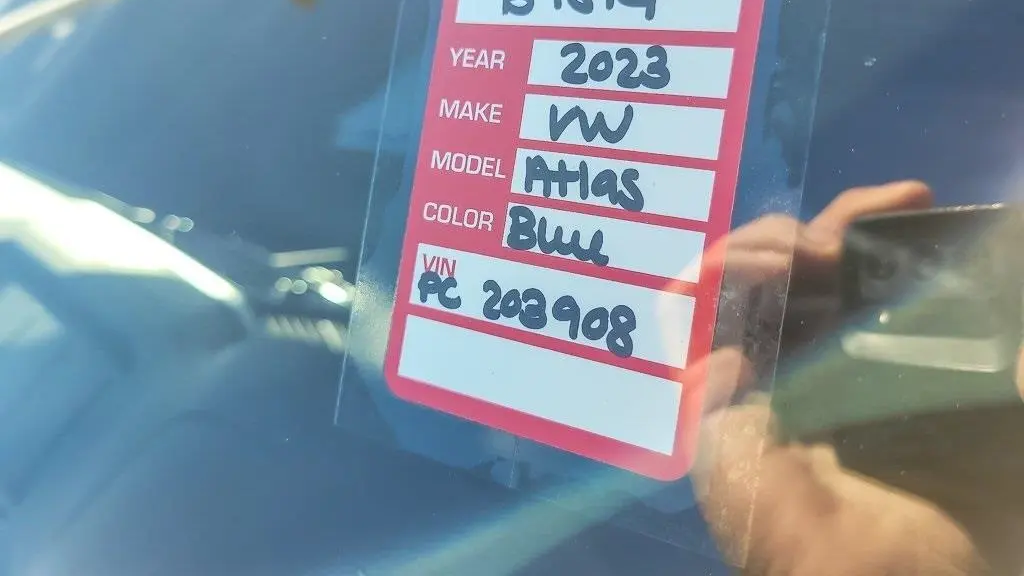 YEAR 2023
MAKE VW
MODEL Atlas
COLOR Blue
VIN
PC 203908